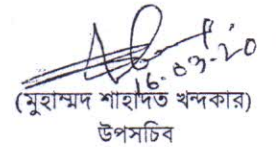 16-03-20
(মুহাম্মদ শাহাদত খন্দকার)
উপসচিব